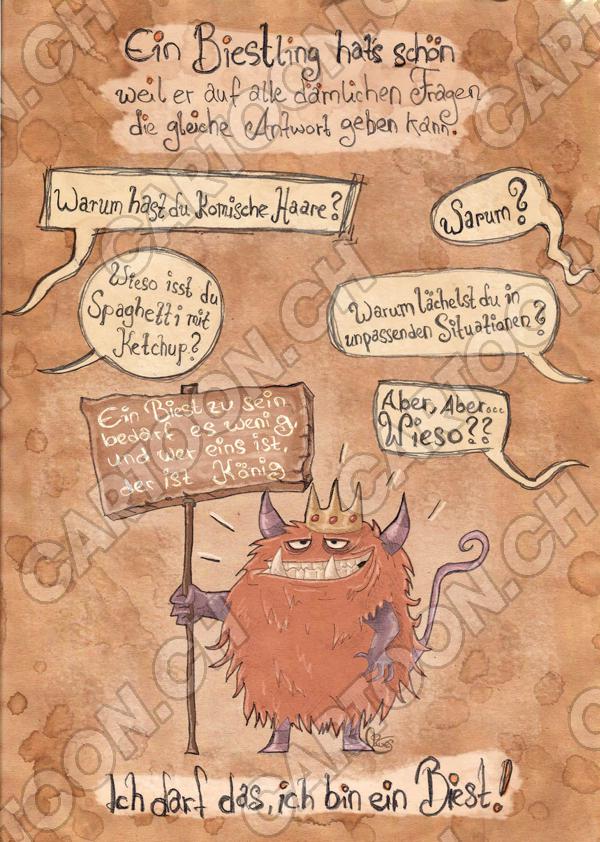 Ein Biestling hats schön
weil er auf alle dämlichen Fragen
die gleiche Antwort geben kann.
Warum hast du komische Haare?
Warum?
Wieso isst du
Spaghetti mit
Ketchup?
Warum lächelst du in
unpassenden Situationen?
Aber, Aber...
Wieso??
Ein Biest zu sein
bedarf es wenig,
und wer eins ist,
der ist König
Ich darf das, ich bin ein Biest!
CARTOON.CH